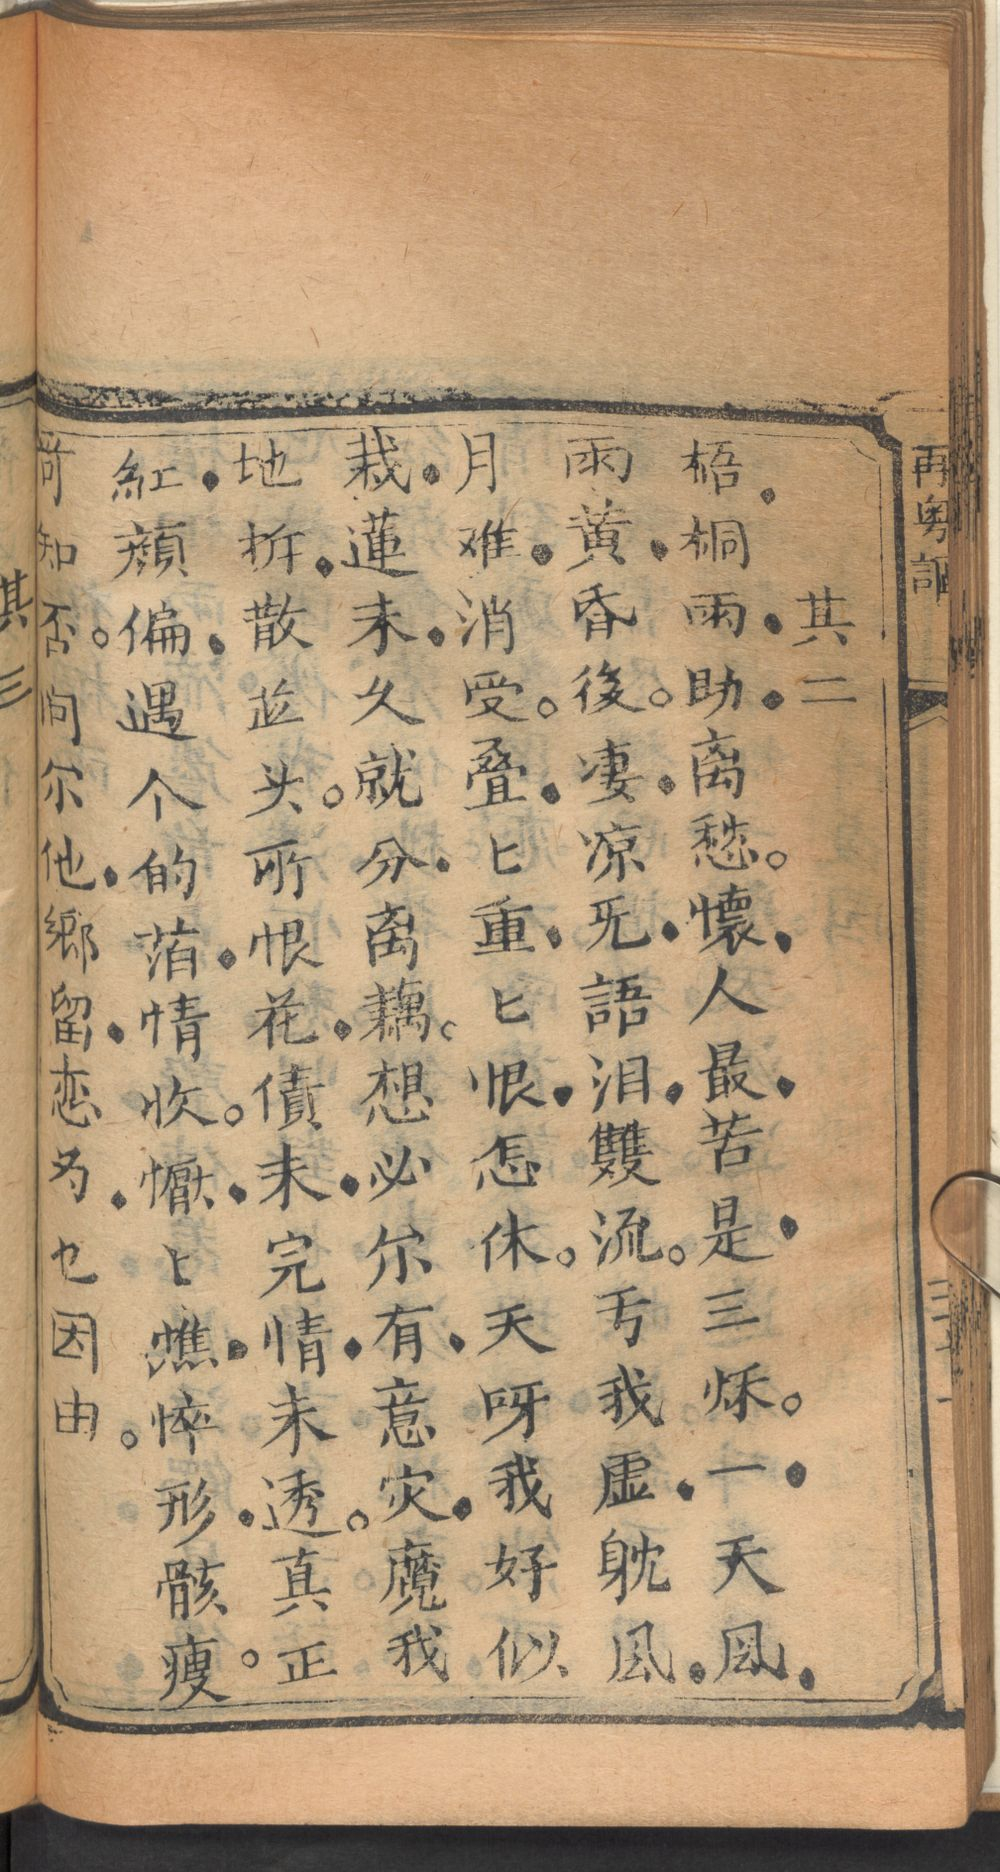 再粵謳
其二
梧桐雨助离愁。懷人最苦是三秌。一天风
雨黄昏後。凄凉旡語泪雙流。亏我虚躭风
月难消受。叠〻重〻恨怎休。天呀我好似
栽蓮未久就分离藕。想必尔有意灾魔我
地折散並头。所恨花債未完情未透。真正
紅顔偏遇个的萡情收。懨〻憔悴形骸瘦。
尔知否。问尔他鄉留恋为乜因由。
其三